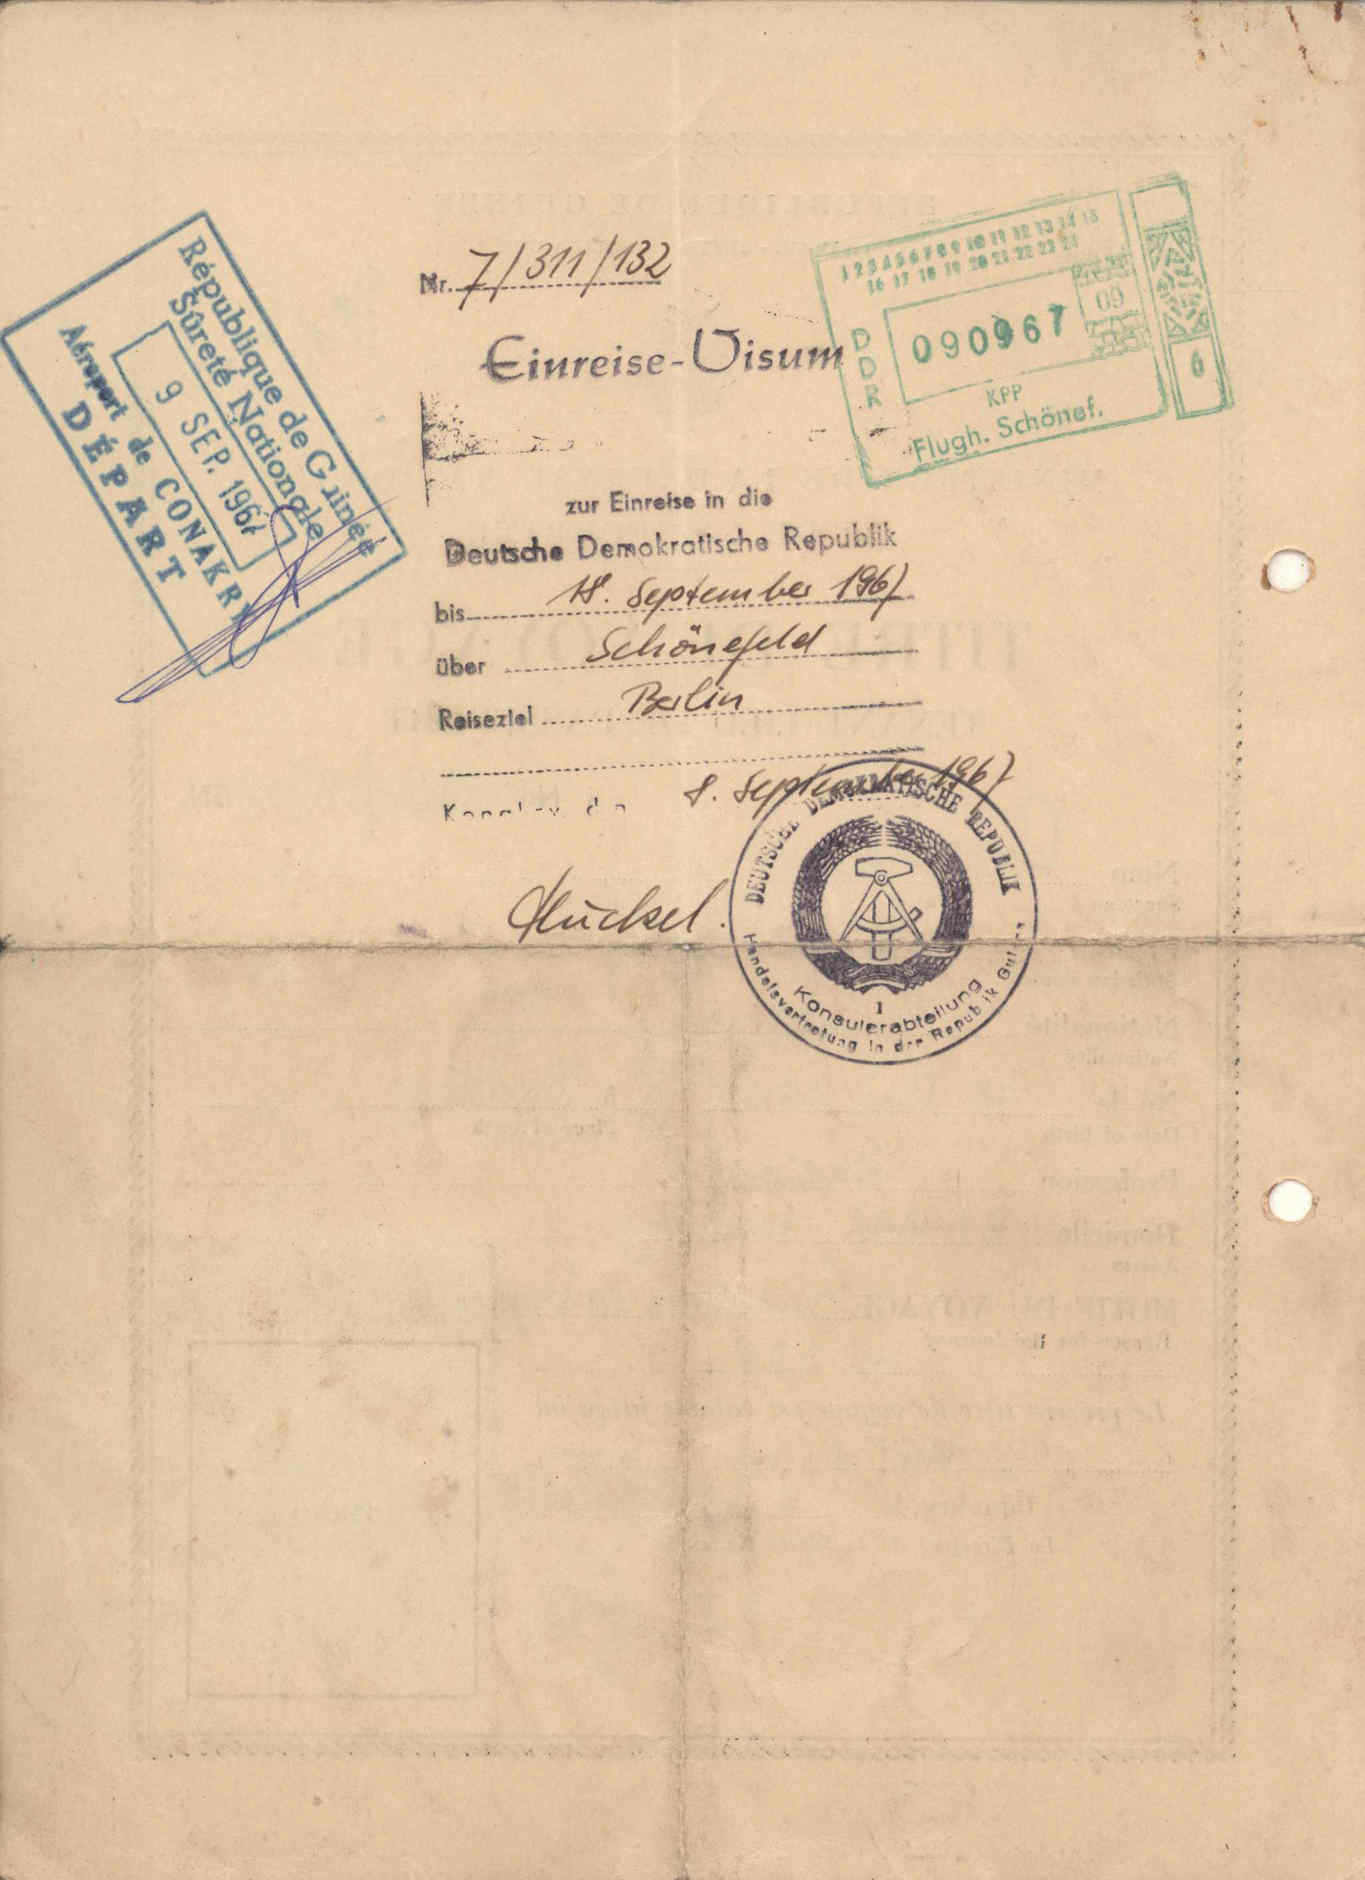 République de Guinée
Sûreté Nationale
9 SEP. 1967
Aéroport de CONAKRY
DÉPART
Nr. 7/311/132
Einreise-Visum
1 2 3 4 5 6 7 8 9 10 11 12 13 14 15
16 17 18 19 20 21 22 23 24
DDR
090967
09
6
KPP
Flugh. Schönef.
zur Einreise in die
Deutsche Demokratische Republik
bis 18. September 1967
über Schönefeld
Reiseziel Berlin
8. September 1967
DEUTSCHE DEMOKRATISCHE REPUBLIK
1
Konsularabteilung
Handelsvertretung in der Republik Guinea